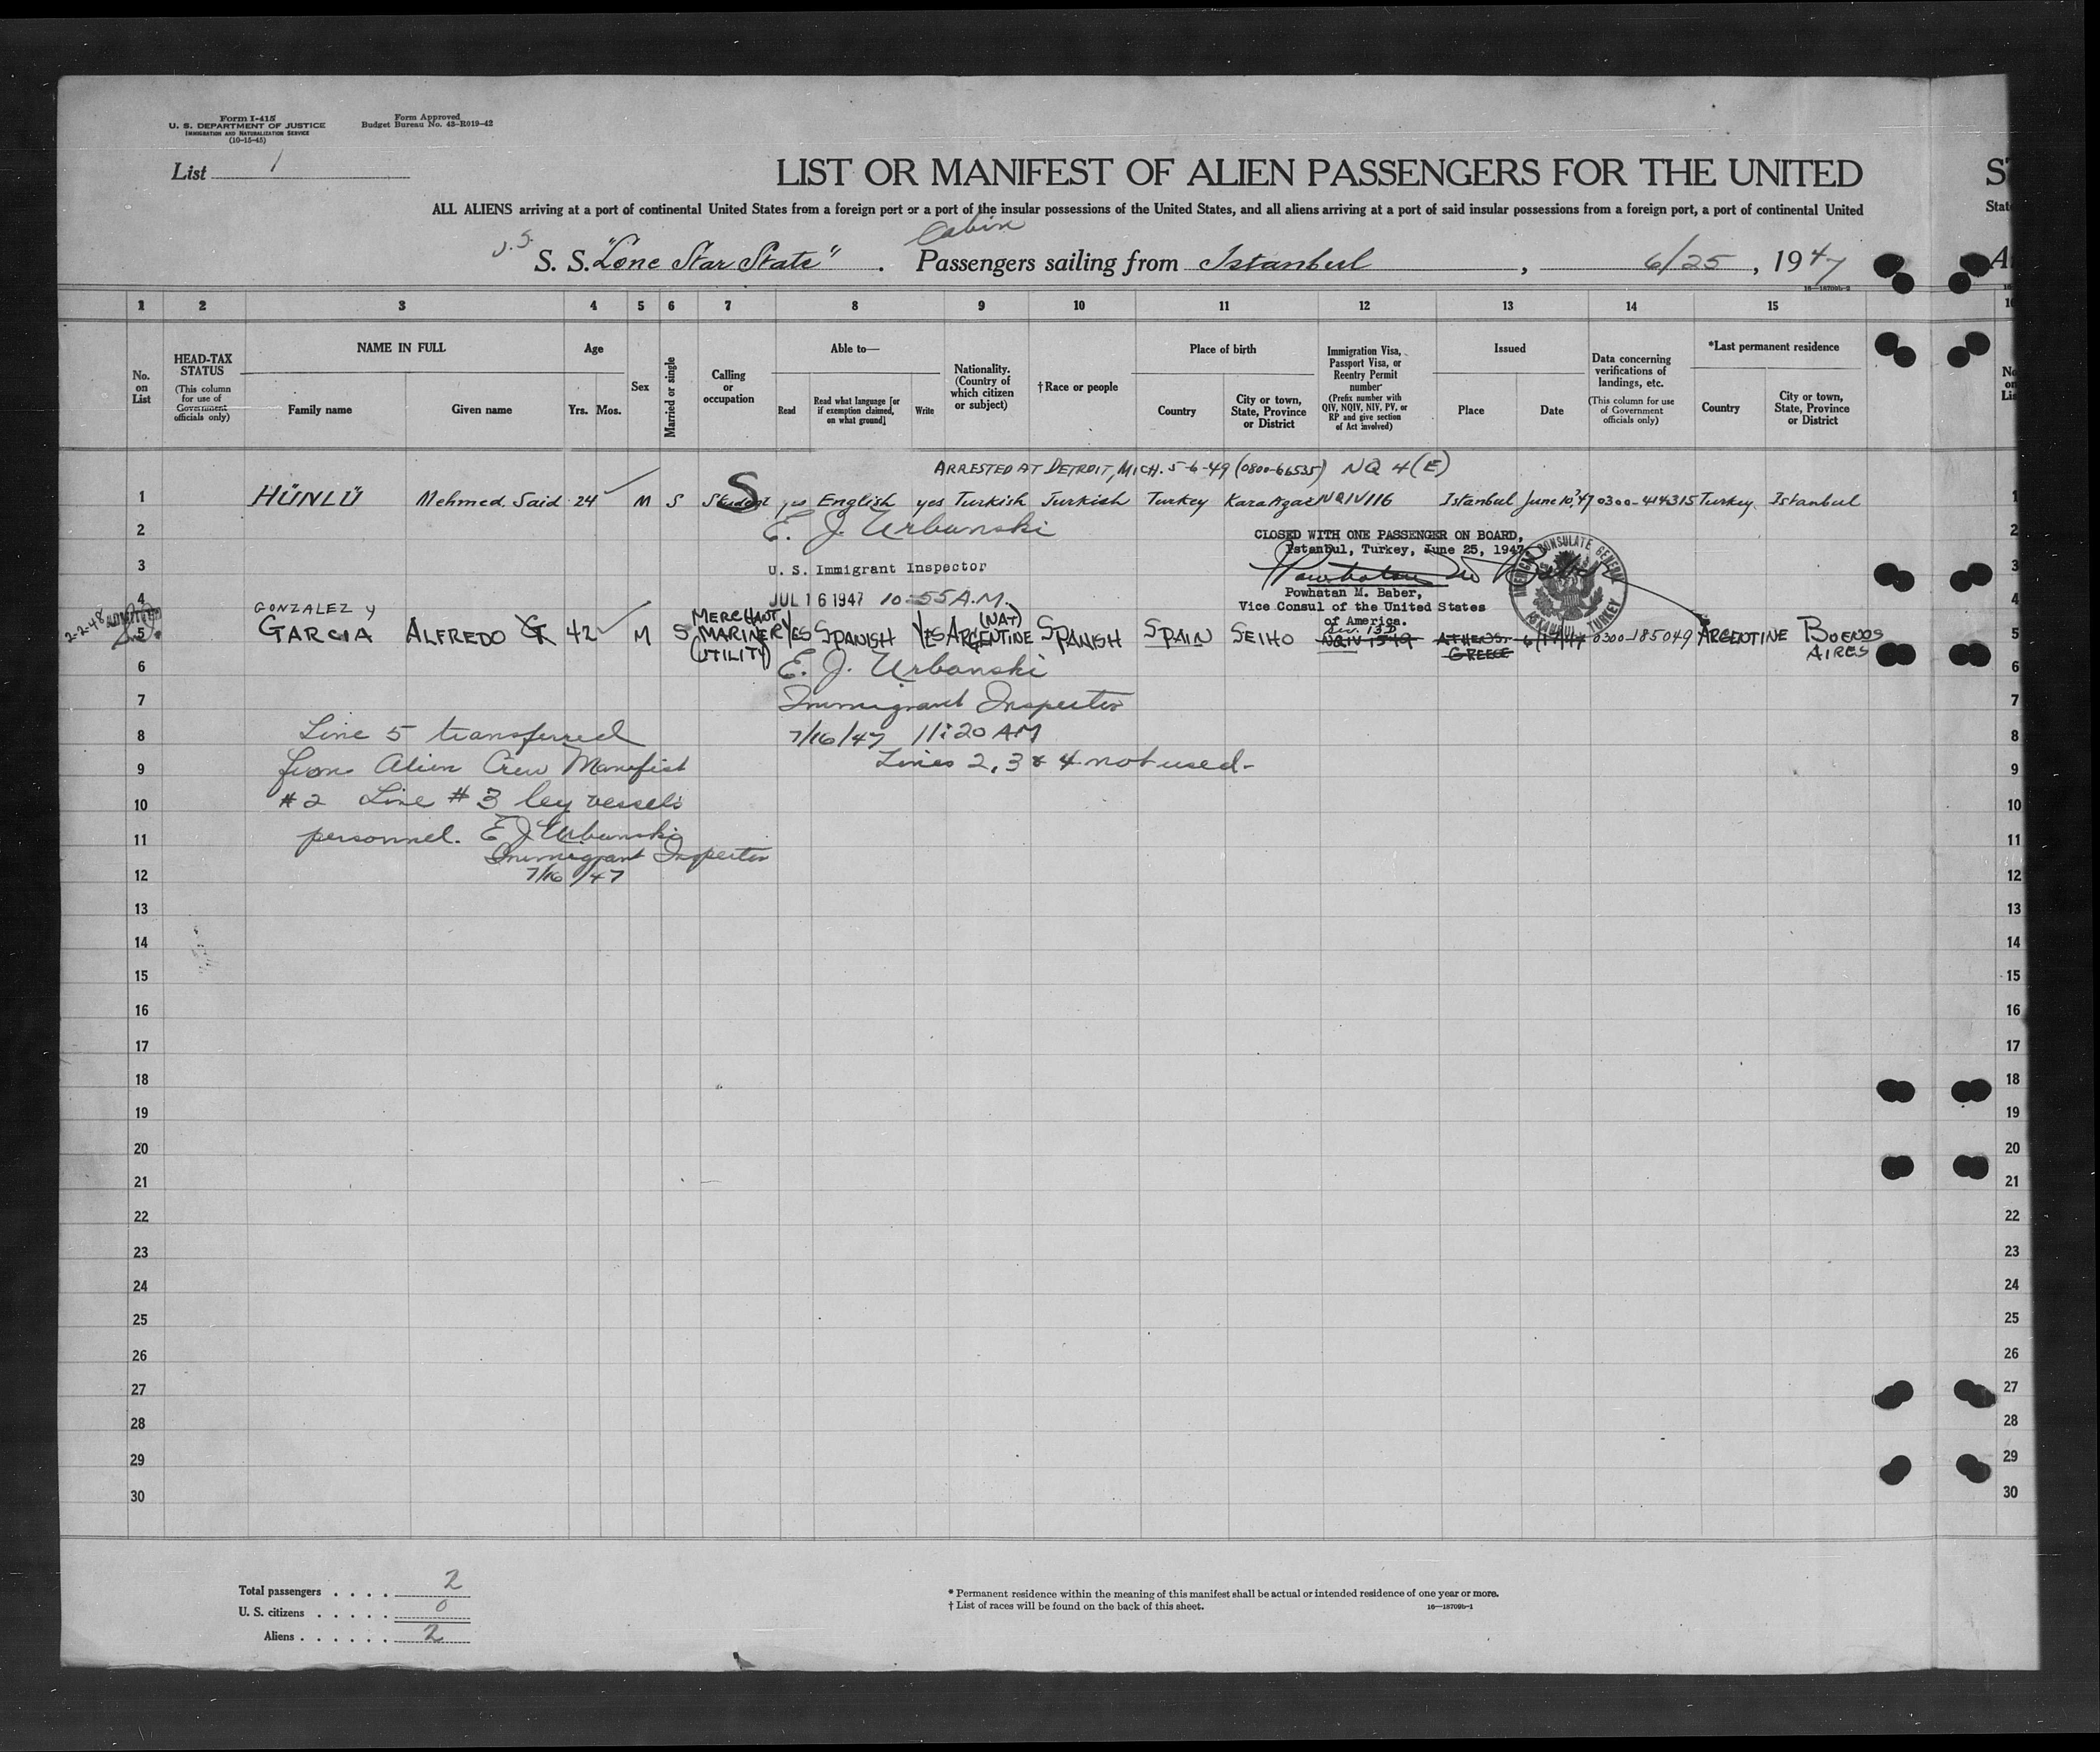 Form I-415
U. S. DEPARTMENT OF JUSTICE
IMMIGRATION AND NATURALIZATION SERVICE
(10-15-45)
Form Approved
Budget Bureau No. 43-R019-42
List 1
LIST OR MANIFEST OF ALIEN PASSENGERS FOR THE UNITED
ST
ALL ALIENS arriving at a port of continental United States from a foreign port or a port of the insular possessions of the United States, and all aliens arriving at a port of said insular possessions from a foreign port, a port of continental United
State
Cabin
U.S. S. S. "Lone Star State" . Passengers sailing from Istanbul , 6/25 , 1947
16—18709b-2
1 2 3 4 5 6 7 8 9 10 11 12 13 14 15
No. on List
HEAD-TAX STATUS
(This column for use of Government officials only)
NAME IN FULL
Family name
Given name
Age
Yrs. Mos.
Sex
Married or single
Calling or occupation
Able to—
Read
Read what language [or if exemption claimed, on what ground]
Write
Nationality. (Country of which citizen or subject)
†Race or people
Place of birth
Country
City or town, State, Province or District
Immigration Visa, Passport Visa, or Reentry Permit number
(Prefix number with QIV, NQIV, NIV, PV, or RP and give section of Act involved)
Issued
Place
Date
Data concerning verifications of landings, etc.
(This column for use of Government officials only)
*Last permanent residence
Country
City or town, State, Province or District
ARRESTED AT DETROIT, MICH. 5-6-49 (0800-66535) NQ 4(E)
1 HÜNLÜ Mehmed Said 24 M S Student S yes English yes Turkish Turkish Turkey KaraAgac NQIV116 Istanbul June 10, 47 0300-414315 Turkey Istanbul
1
2 E. J. Urbanski
2
CLOSED WITH ONE PASSENGER ON BOARD,
Istanbul, Turkey, June 25, 1947
3 U. S. Immigrant Inspector
3
Powhatan M. Baber
AMERICAN CONSULATE GENERAL
ISTANBUL TURKEY
4 JUL 16 1947 10:55 A.M.
4
Powhatan M. Baber,
Vice Consul of the United States
of America.
2-2-48
GONZALEZ y
5 GARCIA ALFREDO G 42 M S MERCHANT MARINER (UTILITY) YES SPANISH YES ARGENTINE (NAT) SPANISH SPAIN SEIHO Sec. 13D NQIV 1549 ATHENS. GREECE 0300-185049 ARGENTINE BUENOS AIRES
5
6 E. J. Urbanski
6
7 Immigrant Inspector
7
8 Line 5 transferred 7/16/47 11:20 AM
8
9 from Alien Crew Manifest Lines 2, 3 & 4 not used-
9
10 #2 Line #3 by vessels
10
11 personnel. E J Urbanski
11
Immigrant Inspector
12 7/16/47
12
13 13
14 14
15 15
16 16
17 17
18 18
19 19
20 20
21 21
22 22
23 23
24 24
25 25
26 26
27 27
28 28
29 29
30 30
Total passengers . . . . 2
U. S. citizens . . . . . 0
Aliens . . . . . . 2
* Permanent residence within the meaning of this manifest shall be actual or intended residence of one year or more.
† List of races will be found on the back of this sheet.
16—18709b-1